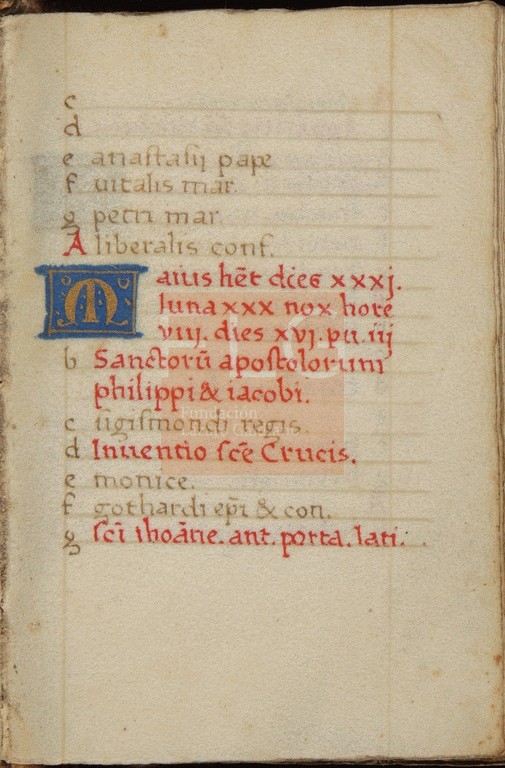 c
d
e anastasij pape
f uitalis mar.
g petri mar.
A liberalis conf.
Maius hēt dies xxxj.
luna xxx nox hore
viij. dies xvj. pu. iij
b Sanctorū apostolorum
philippi & iacobi.
c sigismondi regis.
d Inuentio scē Crucis.
e monice.
f gothardi epī & con.
g scī ihoāne. ant. porta. lati.
Fundación